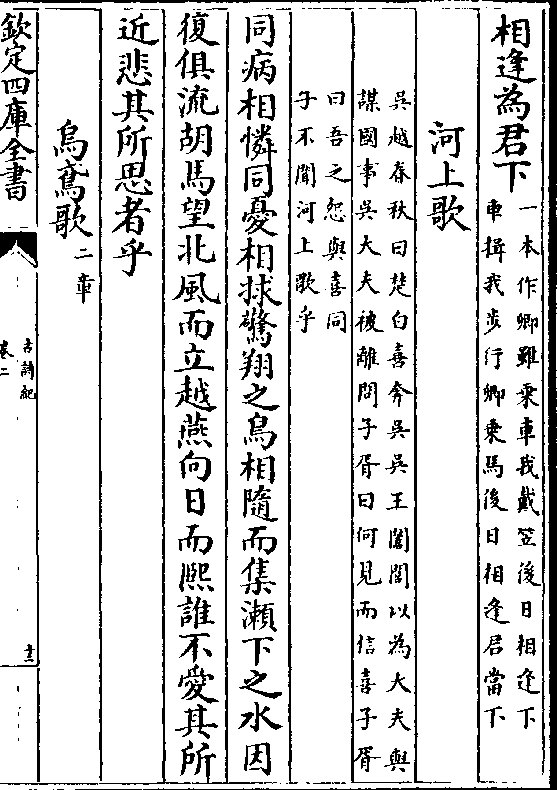 相逢為君下
一本作卿雖乘車我戴笠後日相逢下
車揖我步行卿乘馬後日相逢君當下
河上歌
吳越春秋曰楚白喜奔吳吳王闔閭以為大夫與
謀國事吳大夫被離問子胥曰何見而信喜子胥
曰吾之怨與喜同
子不聞河上歌乎
同病相憐同憂相捄驚翔之鳥相隨而集瀨下之水因
復俱流胡馬望北風而立越燕向日而熈誰不愛其所
近悲其所思者乎
烏鳶歌二章
欽定四庫全書
古詩紀
卷二